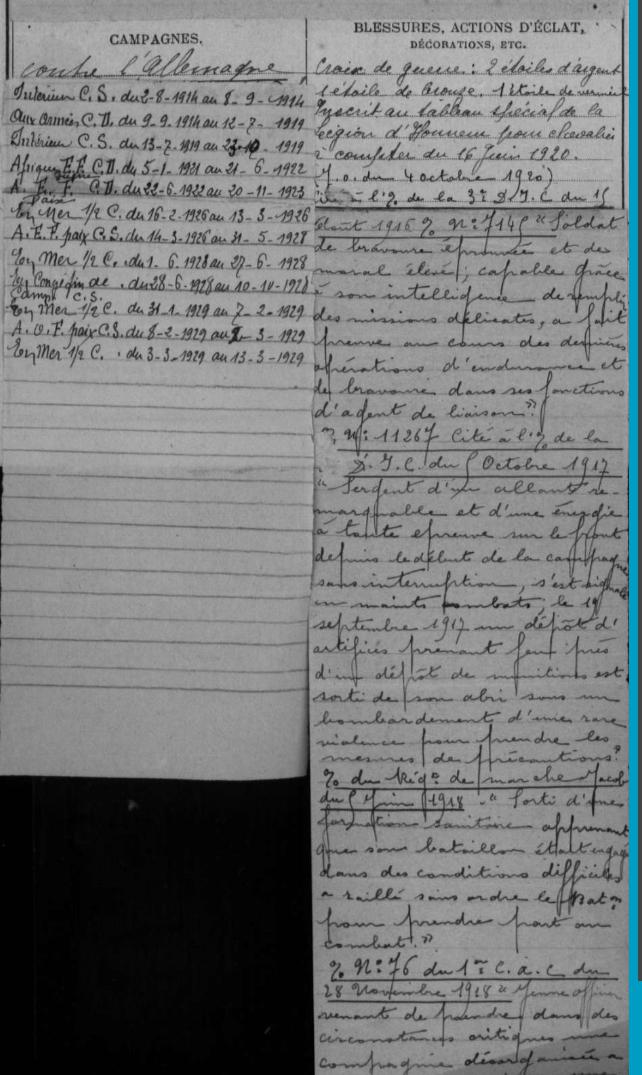 CAMPAGNES.
contre l'Allemagne
Intérieur C.S. du 2-8-1914 au 8-9-1914
Aux Armées C.D. du 9-9-1914 au 12-7-1919
Intérieur C.S. du 13-7-1919 au 23-10-1919
Afrique E.F. C.D. du 5-1-1921 au 21-6-1922
A. E. F. C.D. du 22-6-1922 au 20-11-1923
Paix
En Mer 1/2 C. du 16-2-1926 au 13-3-1926
A.E.F. paix C.S. du 14-3-1926 au 31-5-1928
En Mer 1/2 C. du 1-6-1928 au 27-6-1928
En Congé fin de du 28-6-1928 au 10-10-1928
C.S.
En Mer 1/2 C. du 31-1-1929 au 7-2-1929
A.O.F. paix C.S. du 8-2-1929 au 2-3-1929
En Mer 1/2 C. du 3-3-1929 au 13-3-1929
BLESSURES, ACTIONS D'ÉCLAT,
DÉCORATIONS, ETC.
Croix de guerre : 2 étoiles d'argent
1 étoile de bronze. 1 étoile de vermeil
Inscrit au tableau spécial de la
légion d'Honneur pour chevalier
à compter du 16 Juin 1920.
J.o. du 4 octobre 1920)
à l'% de la 3e D.I.C du 15
Août 1916 % No 7145 "Soldat
de bravoure éprouvée et de
moral élevé ; capable grâce
à son intelligence de remplir
des missions délicates, a fait
preuve au cours des dernières
opérations d'endurance et
de bravoure dans ses fonctions
d'agent de liaison"
% No 11267 Cité à l'% de la
D.I.C. du 5 Octobre 1917
"Sergent d'un allant re-
marquable et d'une énergie
à toute epreuve sur le front
depuis le début de la campagne
sans interruption, s'est signalé
en maints combats, le 19
septembre 1917 un dépôt d'
artifices prenant feu près
d'un dépôt de munitions est
sorti de son abri sous un
bombardement d'une rare
violence pour prendre les
mesures de précautions"
% du Régt de marche
du 5 Juin 1918 - "Sorti d'une
formation sanitaire apprenant
que son bataillon était engagé
dans des conditions difficiles
a raillé sans ordre le Baton
pour prendre part au
combat."
% No 76 du 1er C.a.C du
28 Novembre 1918 "Jeune officier
venant de prendre dans des
circonstances critiques une
compagnie désorganisée a